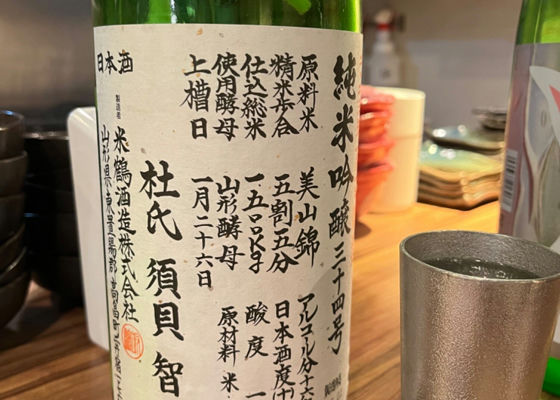 純米吟醸三十四号
原料米 美山錦
精米歩合 五割五分
仕込総米 一五〇〇kg
使用酵母 山形酵母
上槽日 一月二十六日
アルコール分十六
日本酒度(十
酸度 一
原材料 米
杜氏 須貝 智
日本酒
製造者
米鶴酒造株式会社
山形県東置賜郡高畠町二井宿一